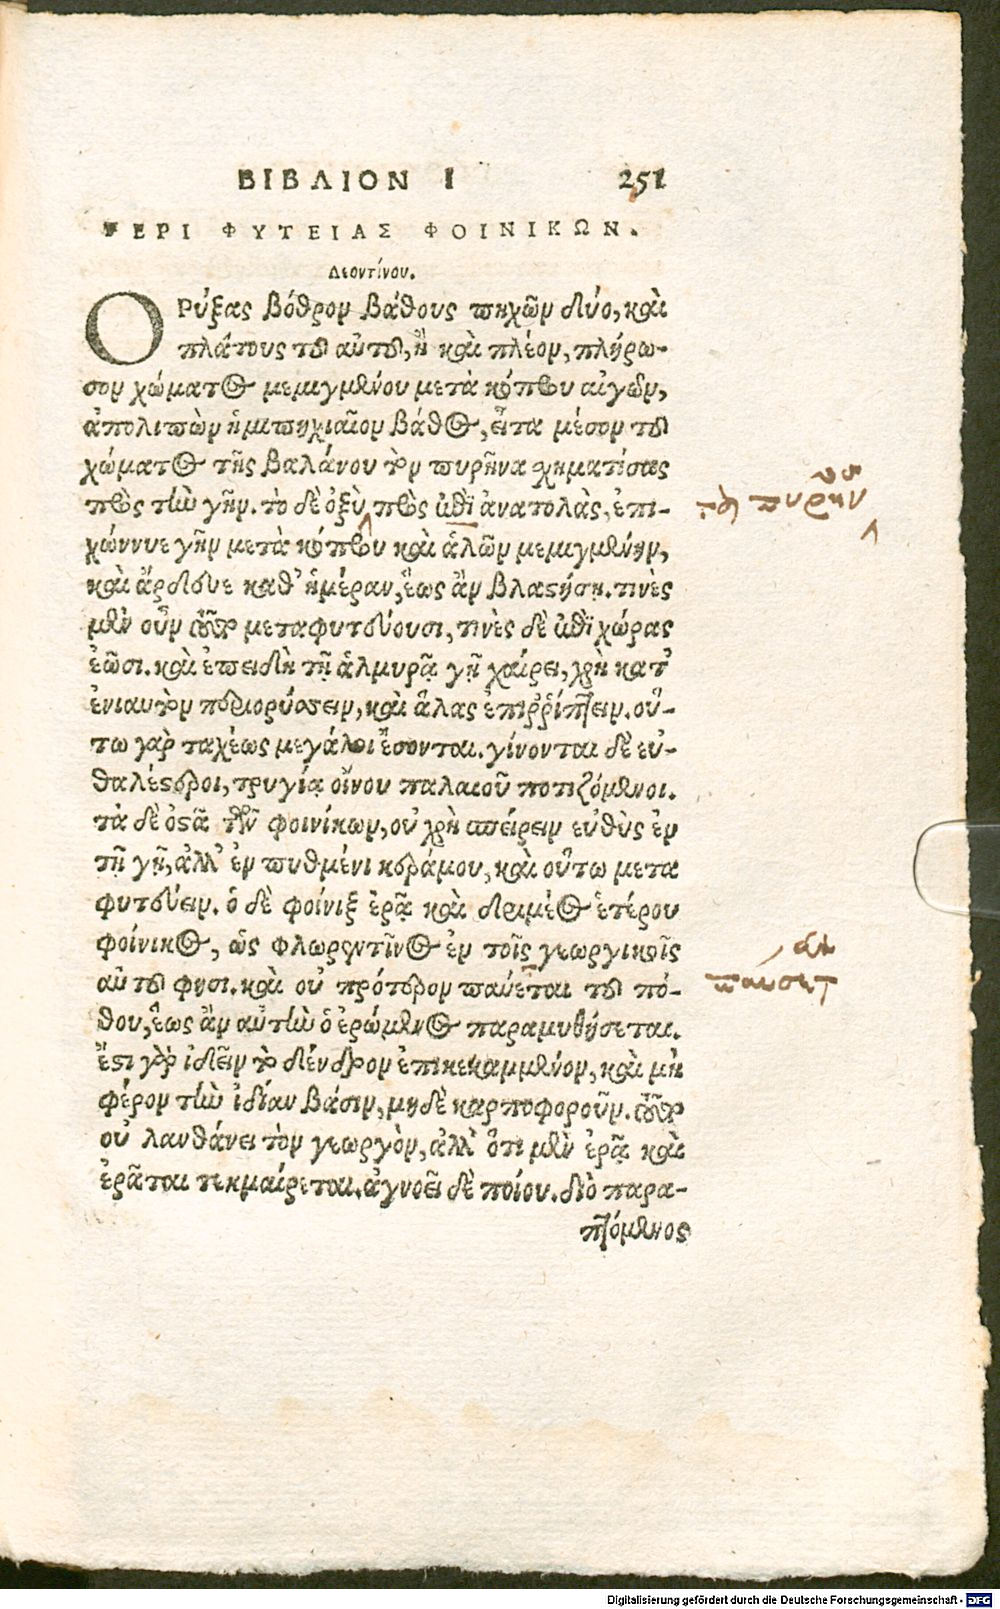 ΒΙΒΛΙΟΝ Ι 251
ΠΕΡΙ ΦΥΤΕΙΑΣ ΦΟΙΝΙΚΩΝ.
Λεοντίνου.
ΟΡύξας βόθρον βάθους πηχῶν δύο, καὶ
πλάτους τοῦ αὐτοῦ, ἢ καὶ πλέον, πλήρω-
σον χώματος μεμιγμένου μετὰ κόπρου αἰγῶν,
ἀπολιπὼν ἡμιπηχιαῖον βάθος, εἶτα μέσον τοῦ
χώματος τῆς βαλάνου τὸν πυρῆνα σχηματίσας
πρὸς τὴν γῆν. τὸ δὲ ὀξὺ, πρὸς ἐπὶ ἀνατολὰς, ἐπι-
χώννυε γῆν μετὰ κόπρου καὶ ἁλῶν μεμιγμένην,
καὶ ἄρδευε καθ' ἡμέραν, ἕως ἂν βλαστήσῃ. τινὲς
μὲν οὖν μεταφυτεύουσι, τινὲς δὲ ἐπὶ χώρας
ἐῶσι. καὶ ἐπειδὴ τῇ ἁλμυρᾷ γῇ χαίρει, χρὴ κατ'
ἐνιαυτὸν περιορύσσειν, καὶ ἅλας ἐπιῤῥίπτειν. οὕ-
τω γὰρ ταχέως μεγάλοι ἔσονται. γίνονται δὲ εὐ-
θαλέστεροι, τρυγίᾳ οἴνου παλαιοῦ ποτιζόμενοι.
τὰ δὲ ὀστᾶ τῶν φοινίκων, οὐ χρὴ σπείρειν εὐθὺς ἐν
τῇ γῇ, ἀλλ' ἐν πυθμένι κεράμου, καὶ οὕτω μετα
φυτεύειν. ὁ δὲ φοίνιξ ἐρᾷ καὶ δριμέος ἑτέρου
φοίνικος, ὡς Φλωρεντῖνος ἐν τοῖς γεωργικοῖς
αὐτοῦ φησι. καὶ οὐ πρότερον παύεται τοῦ πό-
θου, ἕως ἂν αὐτὴν ὁ ἐρώμενος παραμυθήσεται.
ἔστι γὰρ ἰδεῖν τὸ δένδρον ἐπικεκαμμένον, καὶ μὴ
φέρον τὴν ἰδίαν βάσιν, μηδὲ καρποφοροῦν.
οὐ λανθάνει τὸν γεωργὸν, ἀλλ' ὅτι μὲν ἐρᾷ καὶ
ἐρᾶται τεκμαίρεται. ἀγνοεῖ δὲ ποίου. διὸ παρα-
πτόμενος